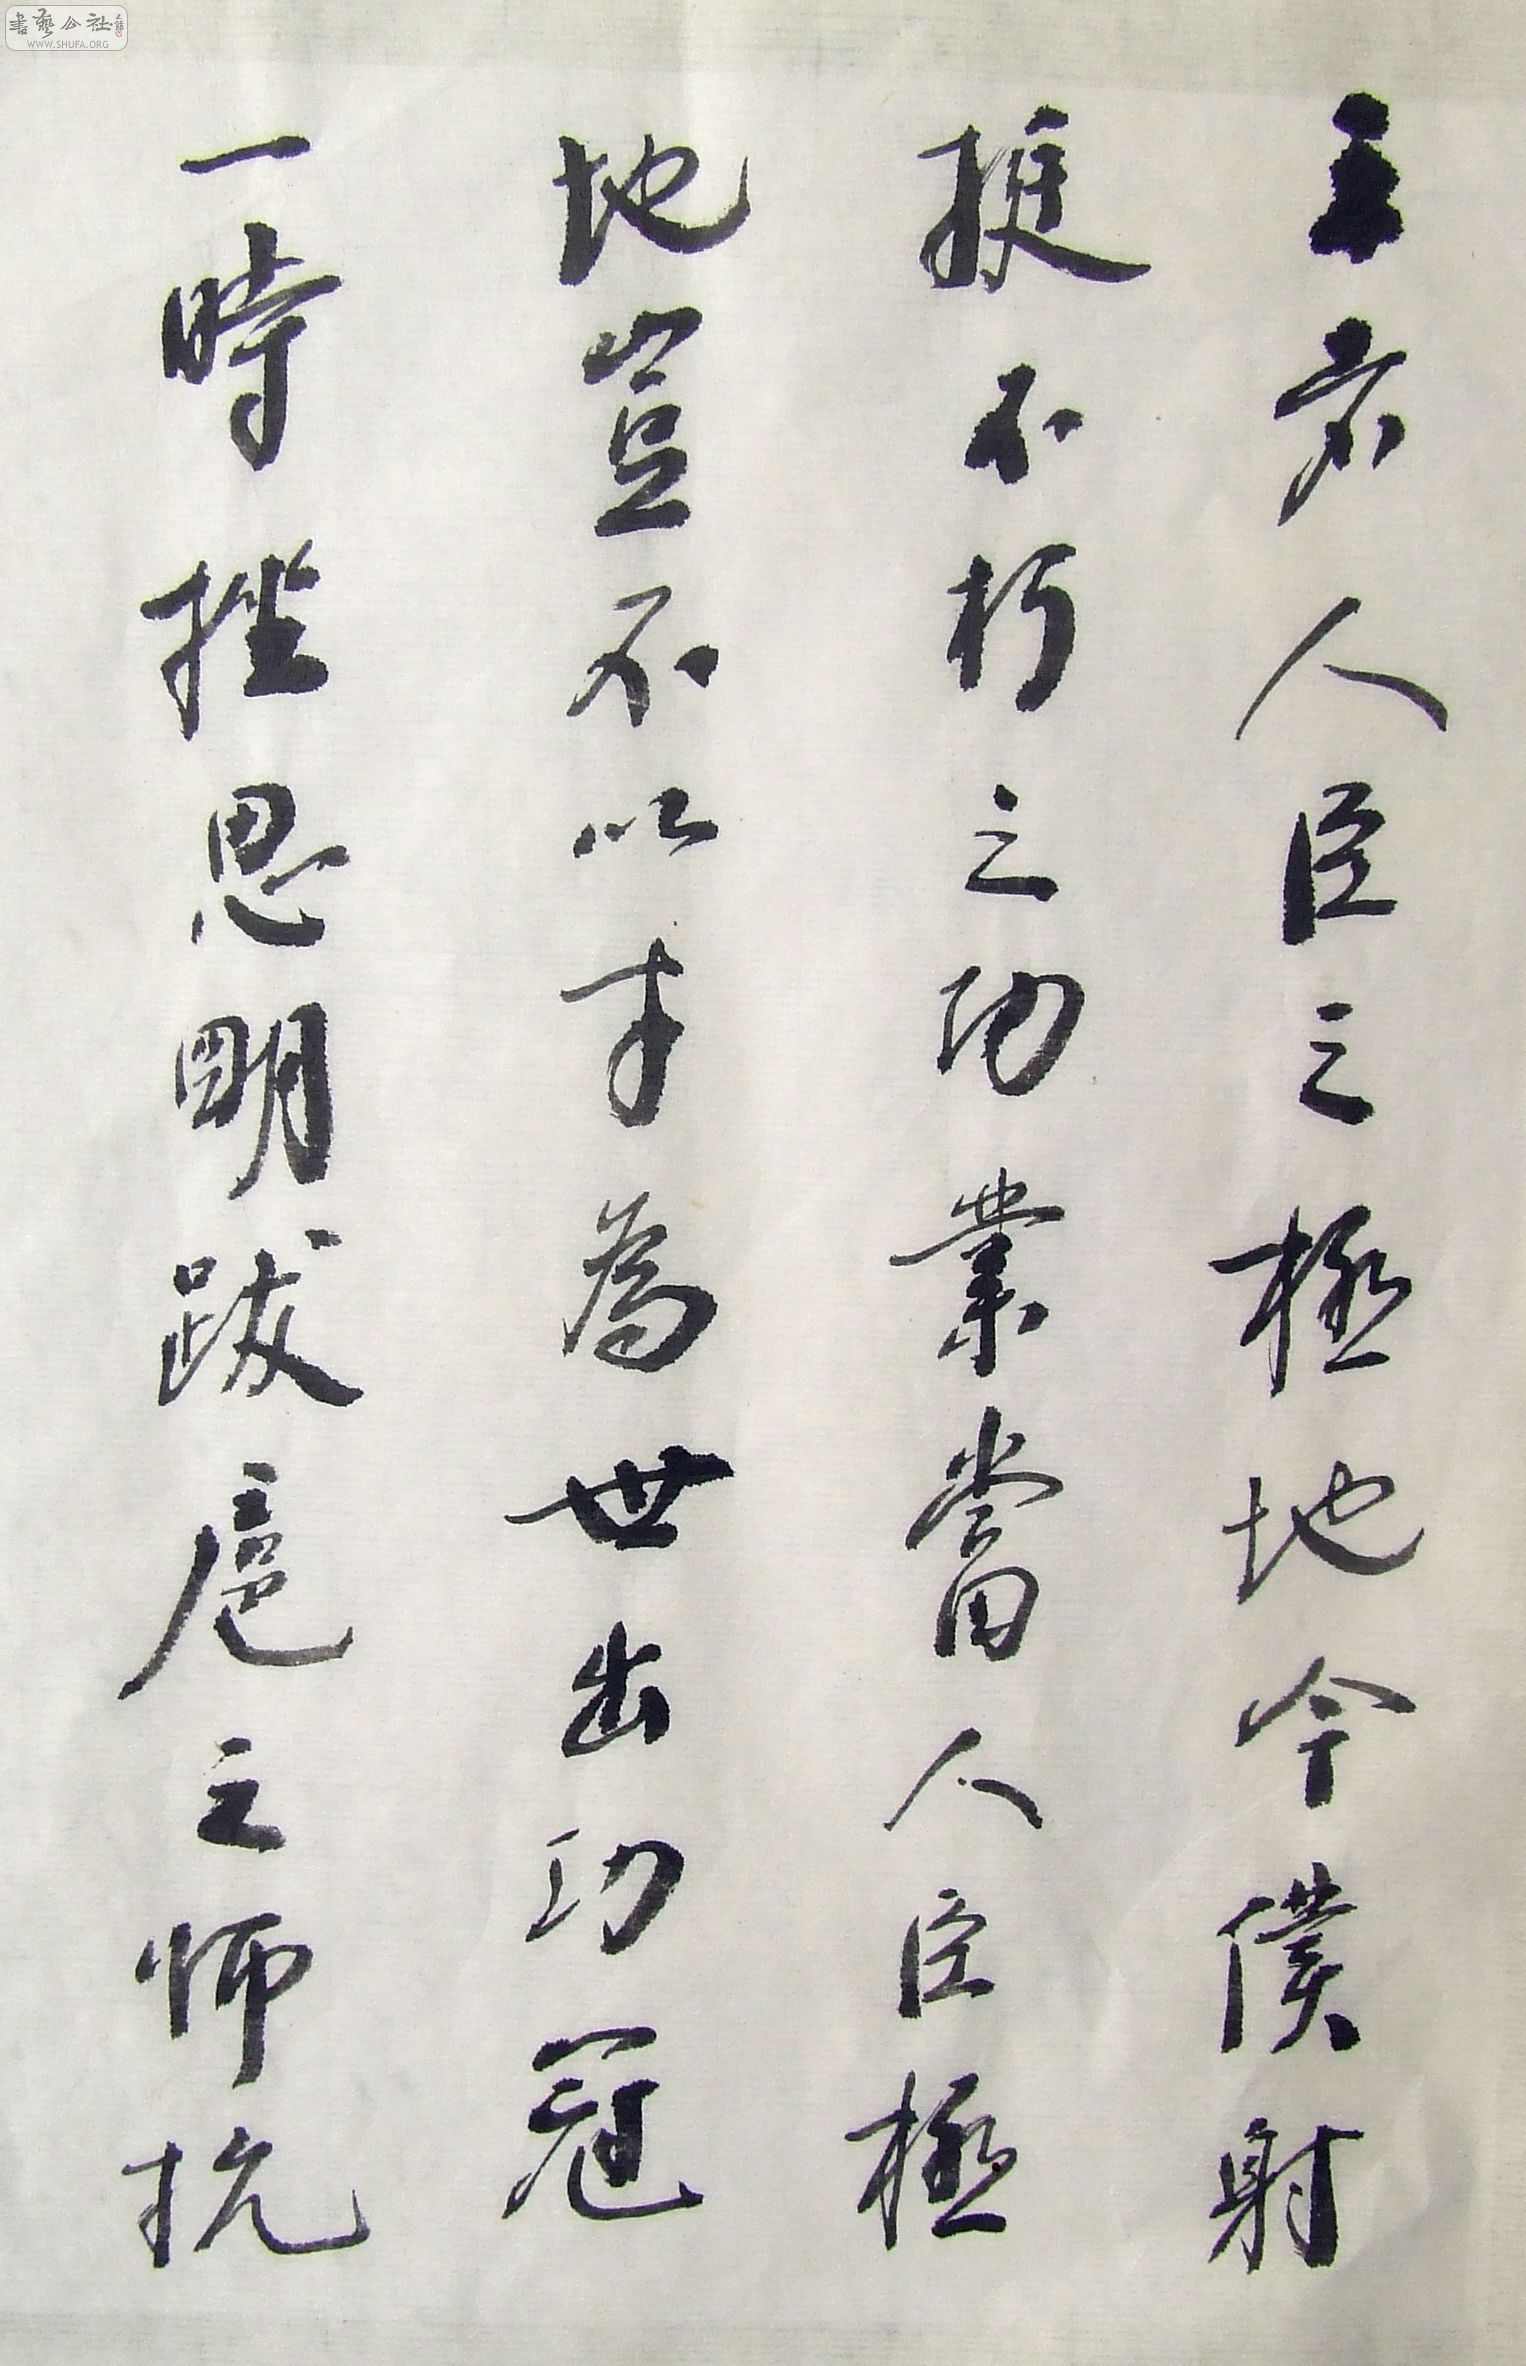 書藝公社
WWW.SHUFA.ORG
王者人臣之極地今僕射
挺不朽之功業當人臣極
地豈不以才為世出功冠
一時挫思明跋扈之師抗